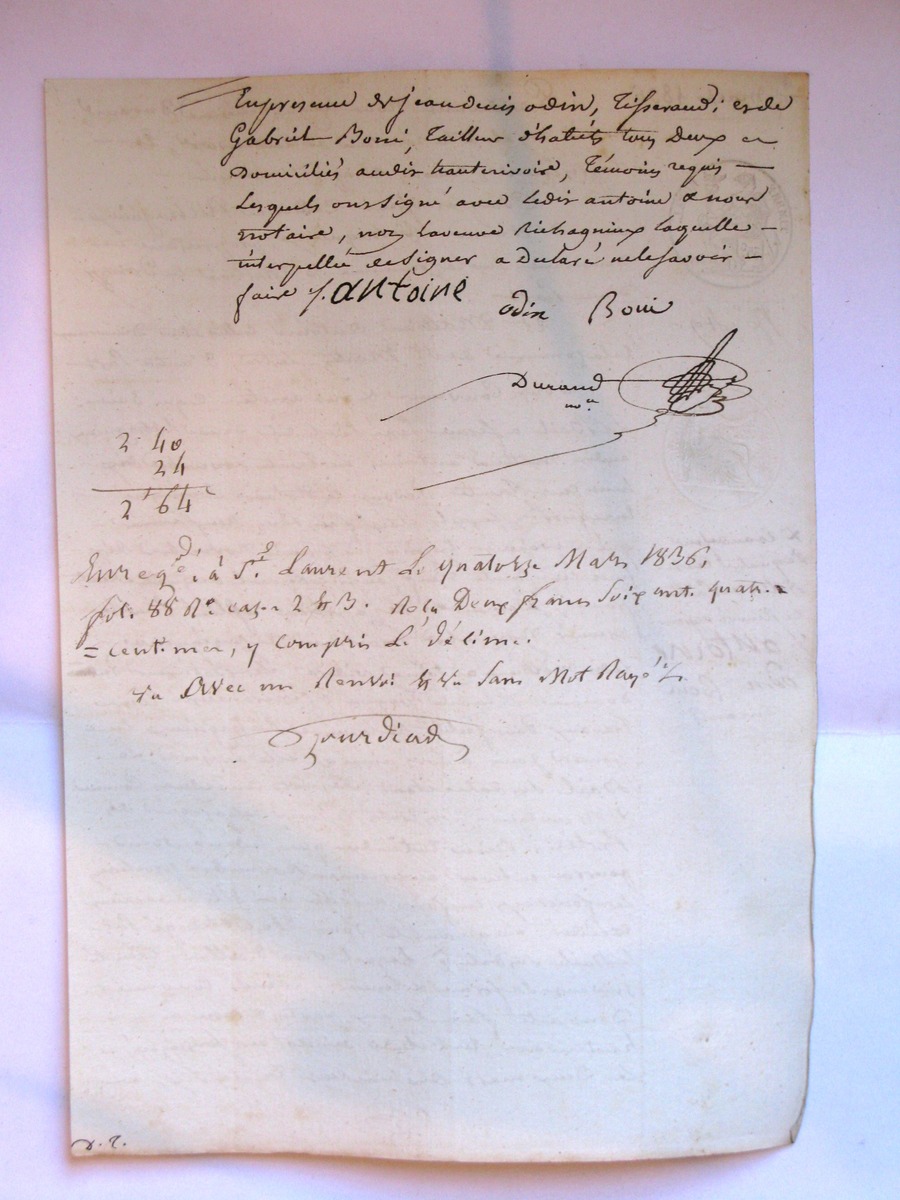 En presence de jean denis odin, Tisserand; et de
Gabriel Boui, tailleur d'habits tous Deux
Domiciliés audit hauterivoire, Témoins requis —
Lesquels ont signé avec ledit antoine & nous
notaire, non la veuve Richagneux laquelle —
interpellée de signer a Déclaré ne le savoir —
faire /. antoine
odin Boui
Durand
nre
2 40
24
2 64
Enregé. à St. Laurent Le quatorze Mars 1836,
fol. 88 Ro. case 2 & 3. Reçu Deux francs Soixant. quatr. =
= centimes, y compris Le décime.
Avec un Renvoi & Sans Mot Rayé
Gourdiad